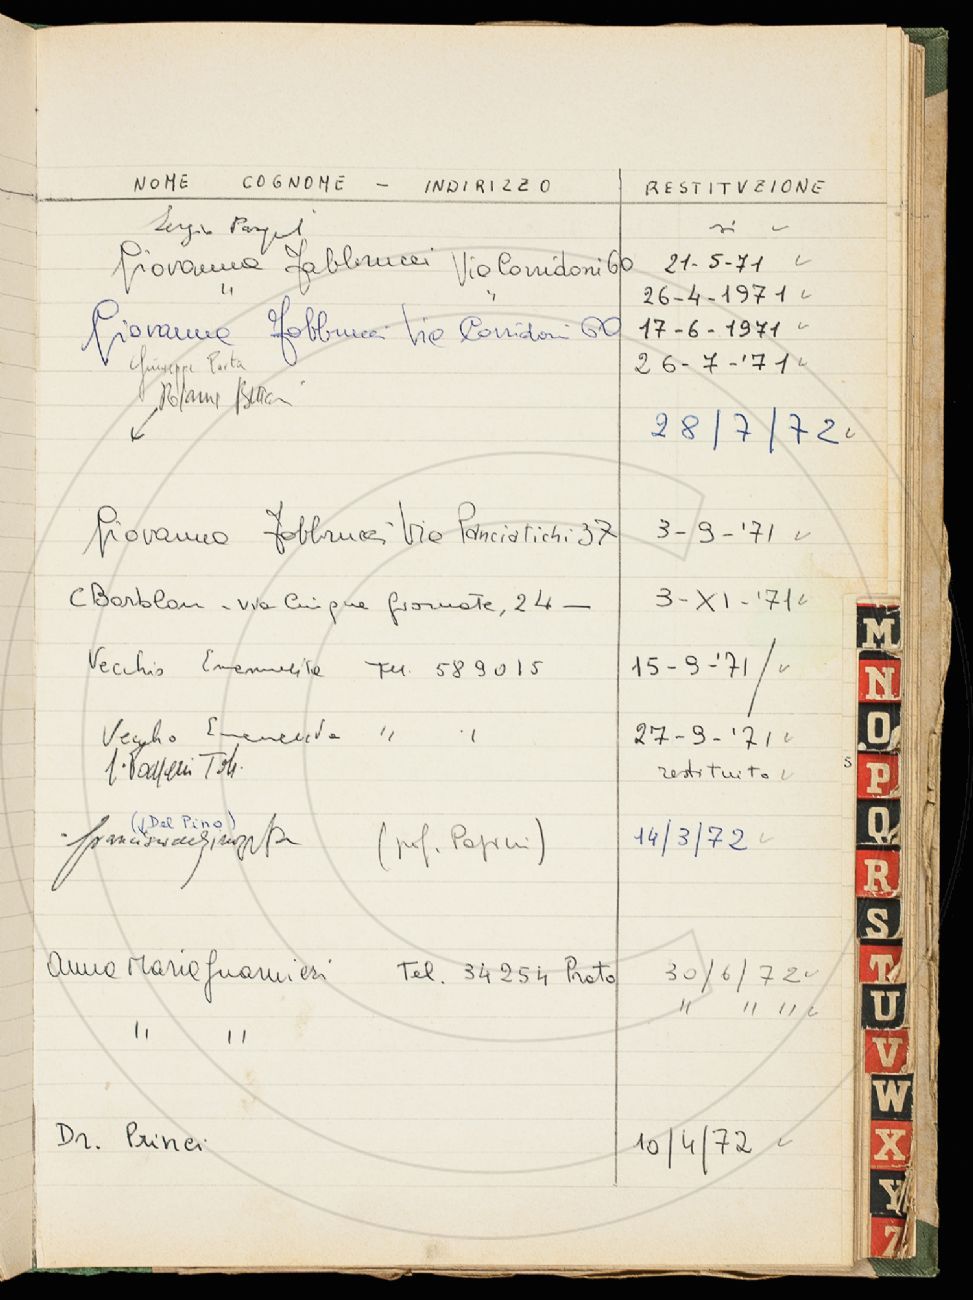 NOME COGNOME - INDIRIZZO RESTITUZIONE
Sergio si ✓
Giovanna Fabbrucci Via Corridoni 60 21-5-71 ✓
" " 26-4-1971 ✓
Giovanna Fabbrucci Via Corridoni 60 17-6-1971 ✓
Giuseppe Porta 26-7-'71 ✓
28/7/72 ✓
Giovanna Fabbrucci Via Panciatichi 37 3-9-'71 ✓
C Barblan - via Cinque Giornate, 24 — 3-XI-'71 ✓
Vecchio Emanuela Tel. 589015 15-9-'71 / ✓
Vecchio Emanuela " " 27-9-'71 ✓
restituito ✓
(Del Pino)
(prof. Papini) 14/3/72 ✓
Anna Maria Guarnieri Tel. 34254 Prato 30/6/72 ✓
" " " ✓
" "
Dr. Princi 10/4/72 ✓
S
M
N
O
P
Q
R
S
T
U
V
W
X
Y
Z